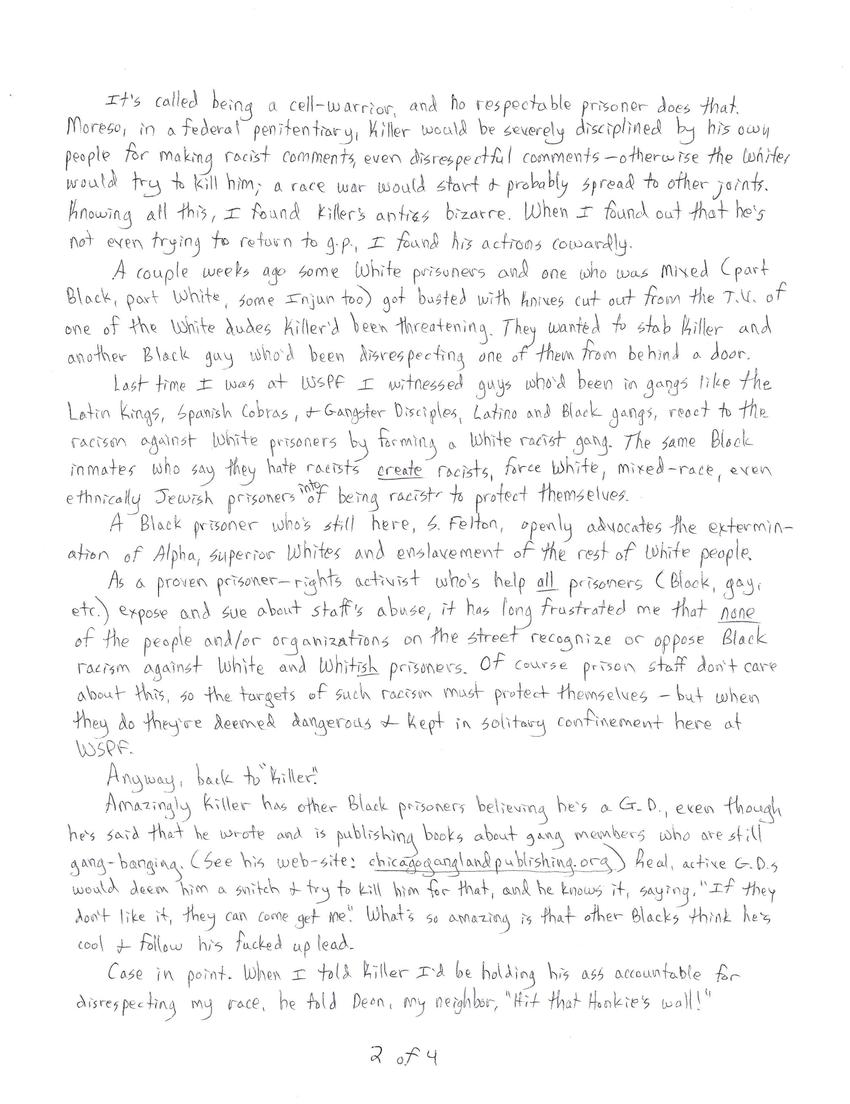 It's called being a cell-warrior, and no respectable prisoner does that.
Moreso, in a federal penitentiary, Killer would be severely disciplined by his own
people for making racist comments, even disrespectful comments — otherwise the Whites
would try to kill him; a race war would start & probably spread to other joints.
Knowing all this, I found Killer's antics bizarre. When I found out that he's
not even trying to return to g.p., I found his actions cowardly.
A couple weeks ago some White prisoners and one who was mixed (part
Black, part White, some Injun too) got busted with knives cut out from the T.V. of
one of the White dudes Killer'd been threatening. They wanted to stab Killer and
another Black guy who'd been disrespecting one of them from behind a door.
Last time I was at WSPF I witnessed guys who'd been in gangs like the
Latin Kings, Spanish Cobras, & Gangster Disciples, Latino and Black gangs, react to the
racism against White prisoners by forming a White racist gang. The same Black
inmates who say they hate racists create racists, force White, mixed-race, even
ethnically Jewish prisoners into of being racist to protect themselves.
A Black prisoner who's still here, S. Felton, openly advocates the extermin-
ation of Alpha, superior Whites and enslavement of the rest of White people.
As a proven prisoner-rights activist who's help all prisoners (Black, gay,
etc.) expose and sue about staff's abuse, it has long frustrated me that none
of the people and/or organizations on the street recognize or oppose Black
racism against White and Whitish prisoners. Of course prison staff don't care
about this, so the targets of such racism must protect themselves — but when
they do they're deemed dangerous & kept in solitary confinement here at
WSPF.
Anyway, back to "Killer".
Amazingly Killer has other Black prisoners believing he's a G.D., even though
he's said that he wrote and is publishing books about gang members who are still
gang-banging. (See his web-site: chicagoganglandpublishing.org) Real, active G.D.s
would deem him a snitch & try to kill him for that, and he knows it, saying, "If they
don't like it, they can come get me". What's so amazing is that other Blacks think he's
cool & follow his fucked up lead.
Case in point. When I told Killer I'd be holding his ass accountable for
disrespecting my race, he told Deon, my neighbor, "Hit that Honkie's wall!"
2 of 4